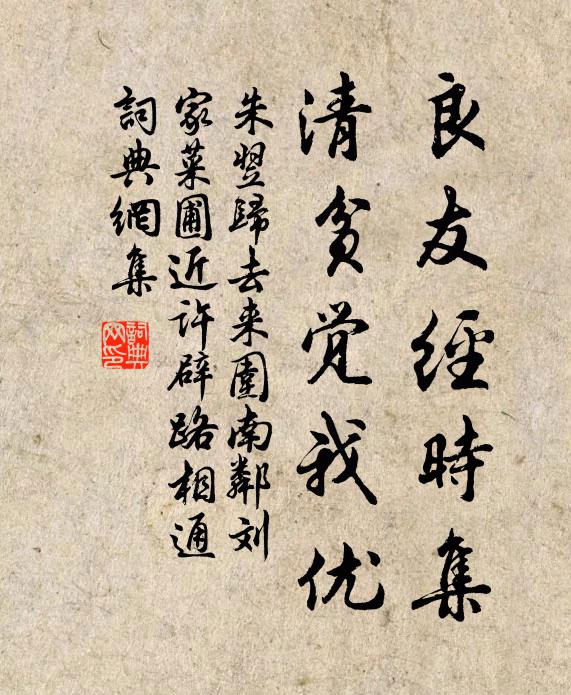 良友經時集
清貧覚我优
朱翌歸去来園南鄰刘
家菜圃近许辟路相通
詞典網集
詞典
网印